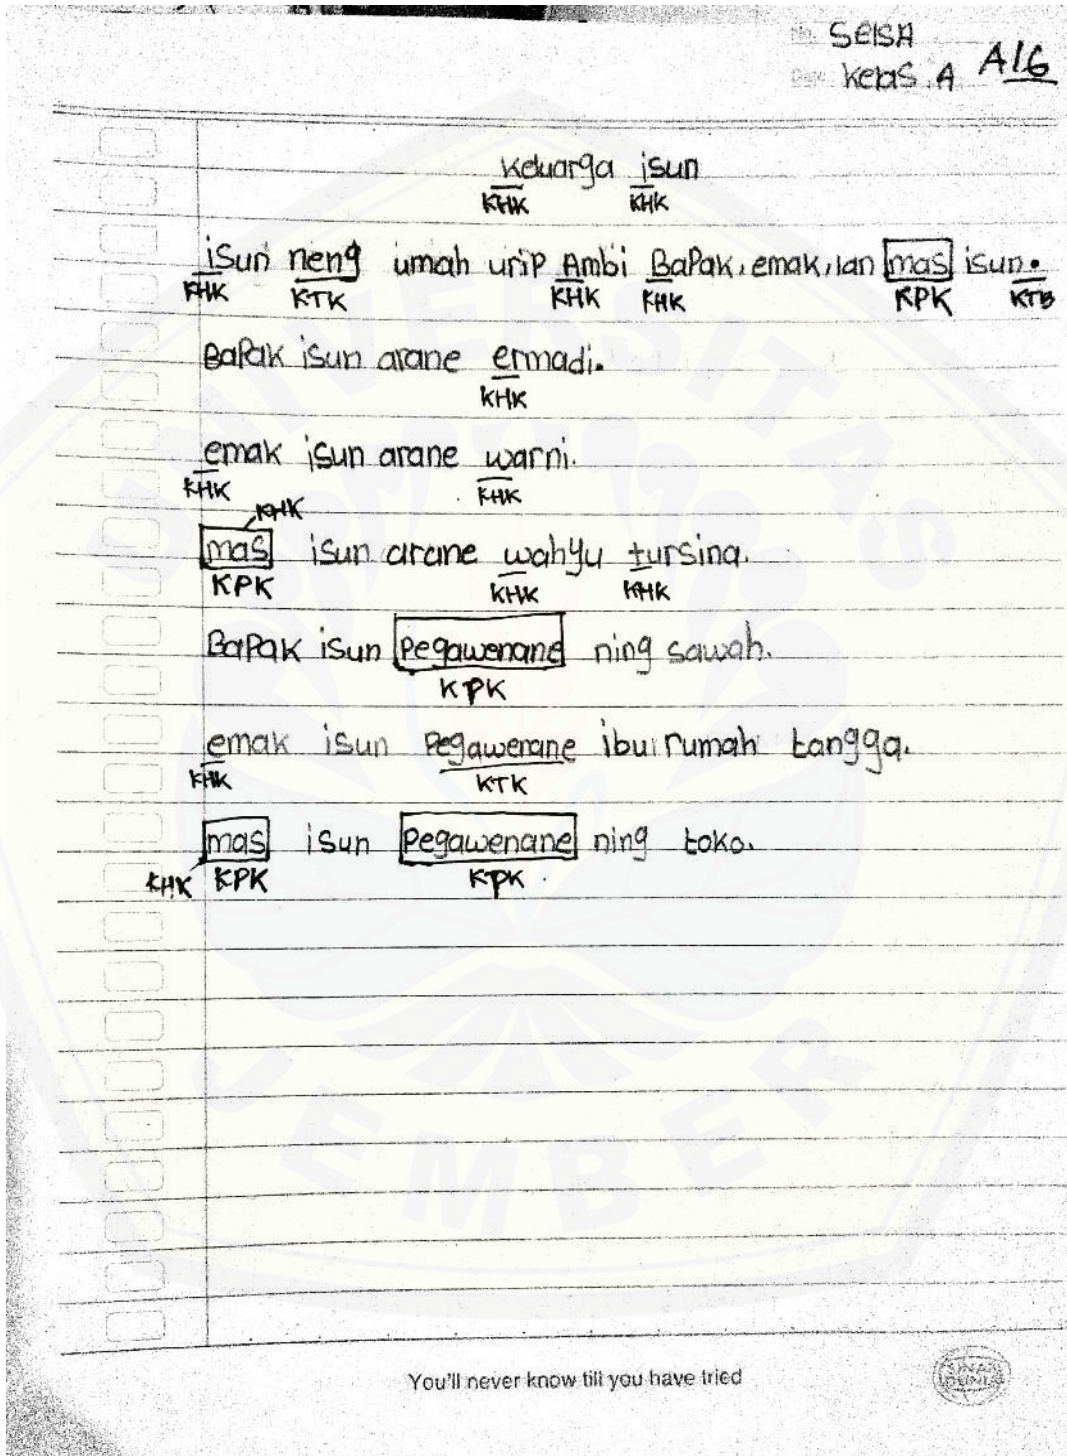 No. SelSA
Date Kelas . A A16
keluarga isun
KHK KHK
isun neng umah urip Ambi BaPak, emak, lan mas isun.
KHK KTK KHK KHK KPK KTB
BaPak isun arane ermadi.
KHK
emak isun arane warni.
KHK KHK
KHK
mas isun arane wahyu tursina.
KPK KHK KHK
BaPak isun Pegawenane ning sawah.
KPK
emak isun Pegawenane ibu rumah tangga.
KHK KTK
mas isun Pegawenane ning toko.
KHK KPK KPK
UNIVERSITAS
JEMBER
You'll never know till you have tried
SINAR DUNIA